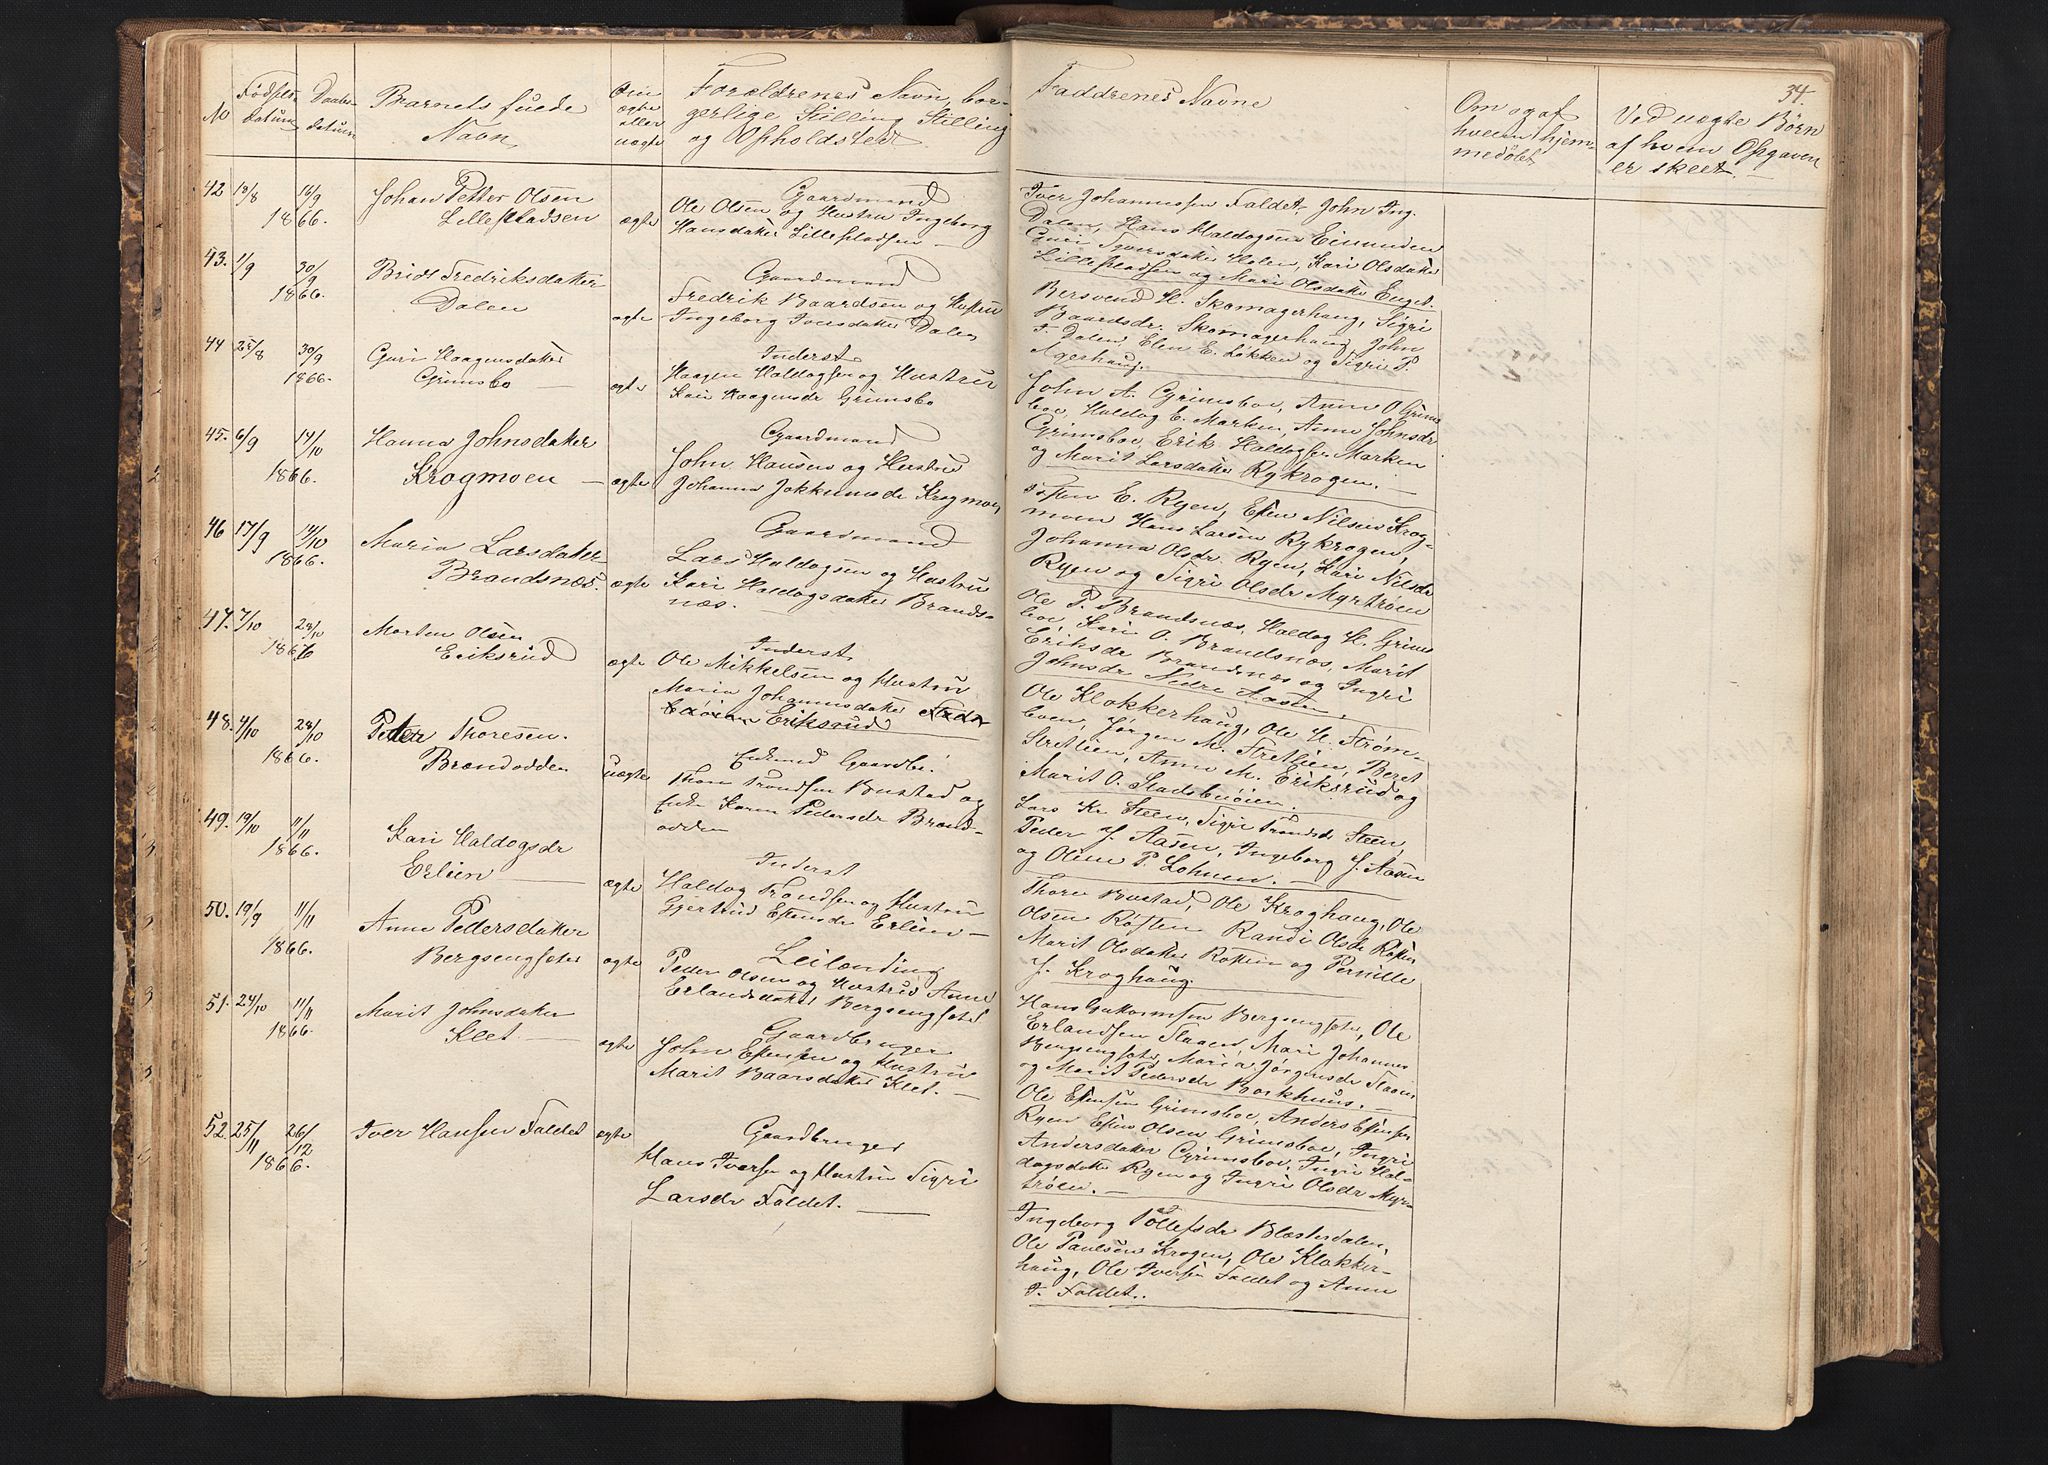 34.
No
Fødsels-
datum
Daabs-
datum
Barnets fulde
Navn
Om
ægte
eller
uægte
Forældrenes Navn, bor-
gerlige Stilling Stilling
og Opholdsted
Faddrenes Navne
Om og af
hvem hjem-
medøbt
Ved uægte Børn
af hvem Opgaven
er skeet.
42 13/8 16/9
1866.
Johan Petter Olsen
Lillepladsen
ægte
Gaardmand
Ole Olsen og Hustru Ingeborg
Hansdater Lillepladsen
Iver Johannessen Faldet, John Ing.
Dalen, Hans Haldogsen Eimunden
Guri Iversdater Holen, Kari Olsdater
Lillepladsen og Mari Olsdater Enget.
43. 1/9 30/9
1866.
Bridt Fredriksdatter
Dalen
ægte
Gaardmand
Fredrik Baardsen og Hustru
Ingeborg Iversdater Dalen
Bersvend H. Skomagerhaug, Sigri
Baardsdr. Skomagerhaug John
F. Dalen, Elen E. Løkken og Sigri P.
Agerhaug.
44 25/8 30/9
1866.
Guri Haagensdater
Grimsbo
ægte
Inderst
Haagen Haldogsen og Hustru
Kari Haagensdr Grimsbo
John A. Grimsboe, Anne O Grims
boe, Haldog E. Marken, Anne Johnsdr
Grimsboe, Erik Haldogsen Marken
og Marit Larsdater Rykrogen.
45. 6/9 14/10
1866.
Hanna Johnsdater
Krogmoen
ægte
Gaardmand
John Hansen og Hustru
Johanna Jokkumsdr Krogmoen
E. Ryen, Esten Nilsen Krog-
moen Hans Larsen Rykrogen,
Johanna Olsdr. Ryen, Kari Nilsdr
Ryen og Sigri Olsdr Myrtrøen
46 17/9 14/10
1866.
Maria Larsdater
Brandsnæs.
ægte
Gaardmand
Lars Haldogsen og Hustru
Kari Haldogsdater Brands-
næs.
Ole P. Brandsnæs, Haldog H. Grims
boe, Kari O. Brandsnæs, Marit
Eriksdr Brandsnæs og Ingri
Johnsdr Nedre Aasen.
47. 7/10 28/10
1866
Morten Olsen
Eriksrud
ægte
Inderst
Ole Mikkelsen og Hustru
Maria Johannesdater
Eriksrud
Ole Klokkerhaug, Ole H. Strøm-
boen, Jørgen M. Stretlien, Beret
Stretlien, Anne M. Eriksrud og
Marit O. Stadsbuøien.
48. 4/10 28/10
1866.
Peder Thoresen.
Brændodden
uægte
Enkemd Gaardbr.
Thore Trondsen Bustad og
Enke Karen Pedersdr Brænd-
odden
Lars Kr. Steen, Sigri Trondsdr Steen,
Peder J. Aasen, Ingeborg J. Aasen
og Oline P. Lohnen.
49. 19/10 11/11
1866.
Kari Haldogsdr
Erlien
ægte
Inderst
Haldog Trondsen og Hustru
Gjertrud Estensdr Erlien
Thore Bustad, Ole Kroghaug, Ole
Olsen Røsten Randi Olsdr Røsten
Marit Olsdater Røsten og Pernille
J. Kroghaug.
50. 19/9 11/11
1866.
Anne Pedersdatter
Bergsengsæter
ægte
Leilænding
Peder Olsen og Hustru Anne
Erlandsdater Bergsengsæter
Hans Bergsengsæter, Ole
Erlandsen Staaen, Mari Johannes
Bergsengsæter, Maria Jørgensdr Staaen
og Marit Pedersdr Borkhuus.
51. 24/10 11/11
1866.
Marit Johnsdater
Klet.
ægte
Gaardbruger
John Estensen og Hustru
Marit Baarsdater Klet.
Ole Estensen Grimsboe, Anders Estensen
Ryen Esten Olsen Grimsboe, Ingri
Andersdater Grimsboe, Ingri Hal-
dogsdater Ryen og Ingri Olsdr Myr-
trøen.
52. 25/11 26/12
1866.
Iver Hansen Faldet
ægte
Gaardbruger
Hans Iversen og Hustru Sigri
Larsdr Faldet.
Ingeborg Tollefsdr Blæsterdalen,
Ole Paulsen Krogen, Ole Klokker-
haug, Ole Iversen Faldet og Anne
I. Faldet.